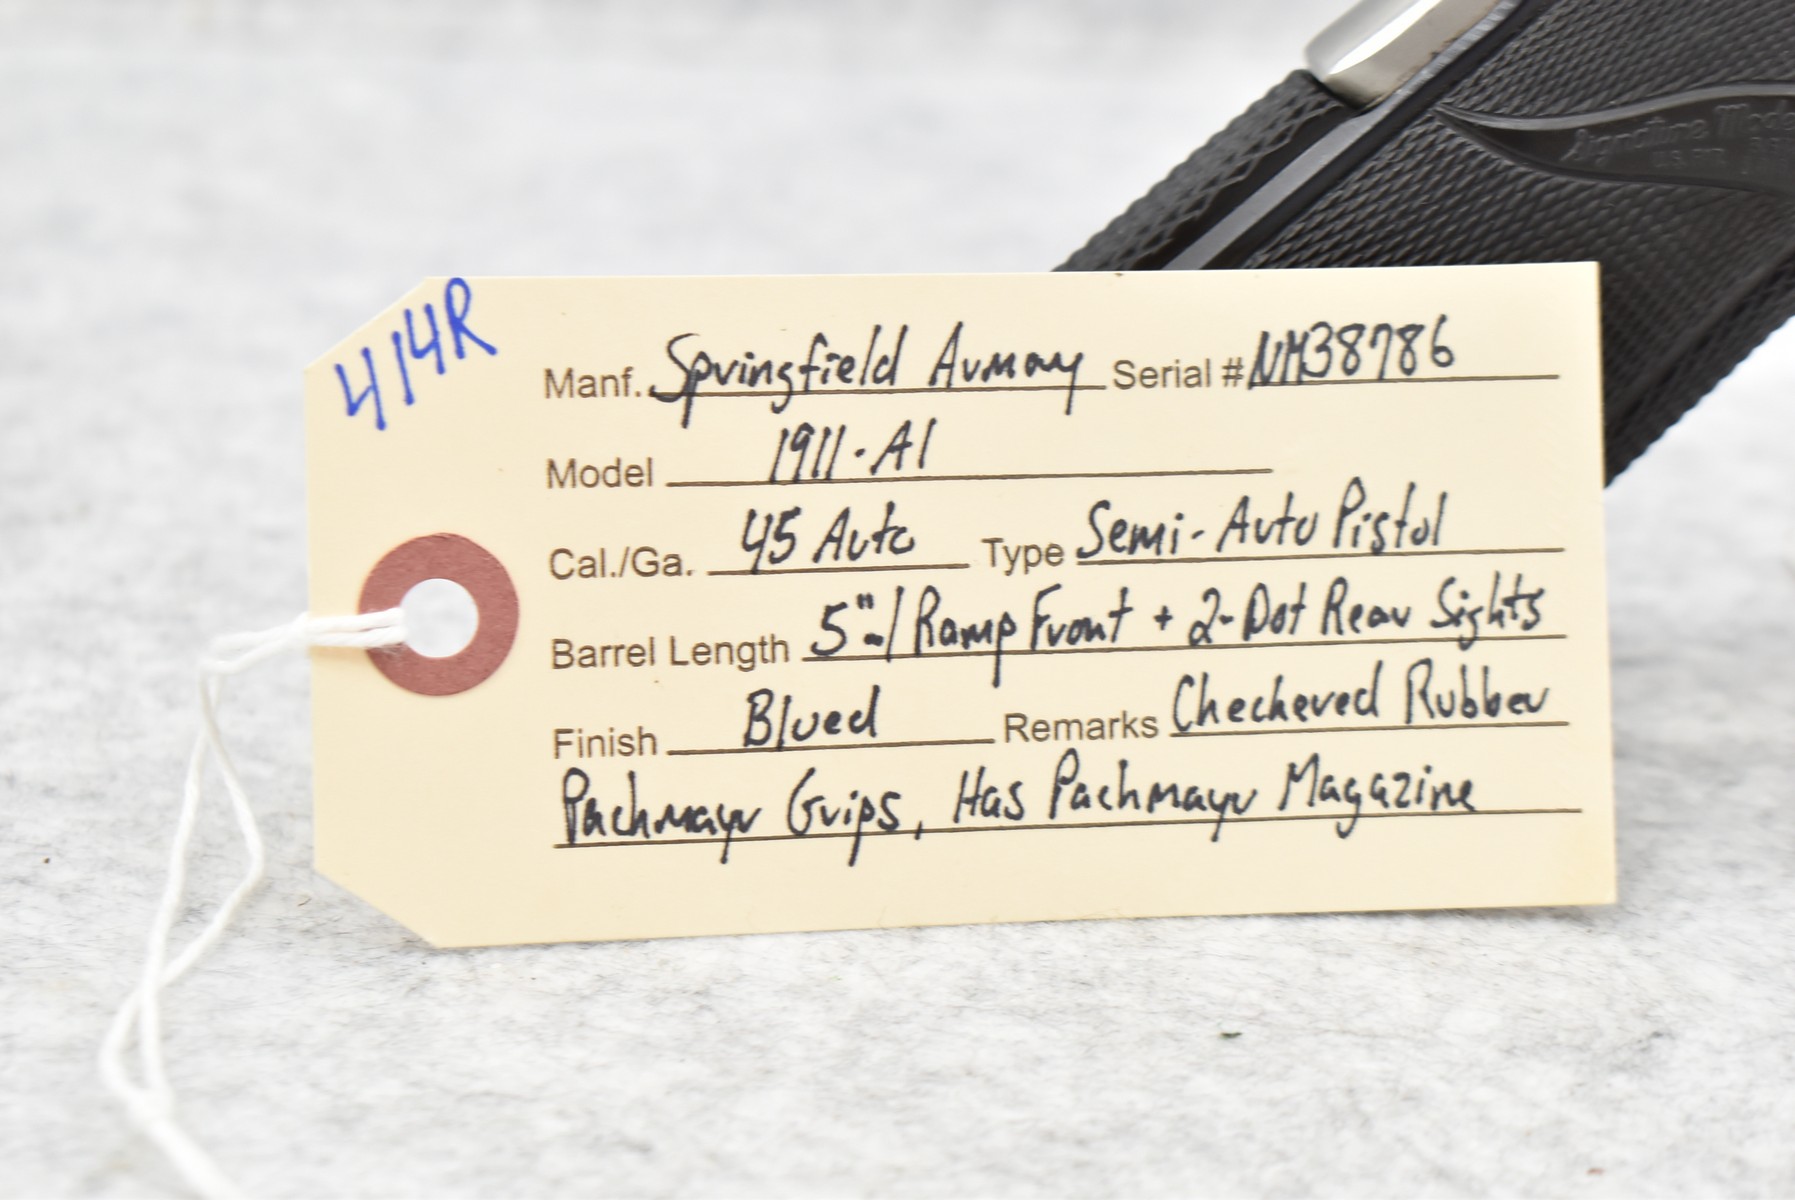 414R
Manf. Springfield Armory Serial # NM38786
Model 1911-A1
Cal./Ga. 45 Auto Type Semi-Auto Pistol
Barrel Length 5"-/ Ramp Front + 2-Dot Rear Sights
Finish Blued Remarks Checkered Rubber
Pachmayr Grips, Has Pachmayr Magazine
Signature Mode